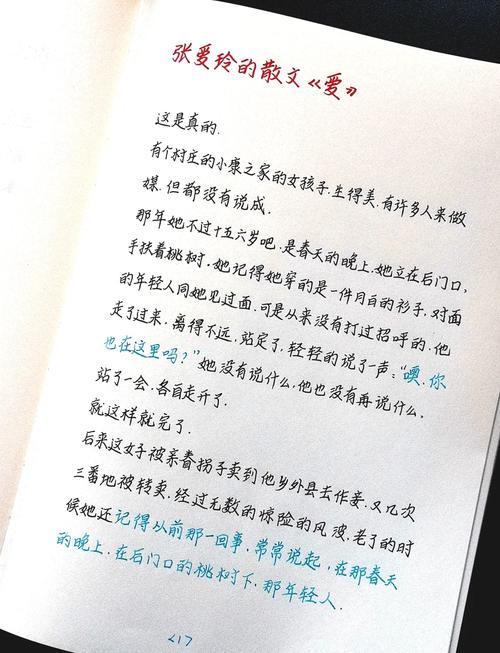 张爱玲的散文《爱》
这是真的.
有个村庄的小康之家的女孩子.生得美.有许多人来做
媒.但都没有说成.
那年她不过十五六岁吧.是春天的晚上.她立在后门口,
手扶着桃树.她记得她穿的是一件月白的衫子.对面
的年轻人同她见过面.可是从来没有打过招呼的.他
走了过来.离得不远.站定了,轻轻的说了一声:“噢.你
也在这里吗?”她没有说什么.他也没有再说什么,
站了一会.各自走开了.
就这样就完了.
后来这女子被亲眷拐子卖到他乡外县去作妾.又几次
三番地被转卖.经过无数的惊险的风波.老了的时
候她还记得以前那一回事,常常说起,在那春天
的晚上.在后门口的桃树下.那年轻人.
217